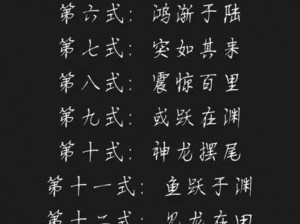 第六式：鸿渐于陆
第七式：突如其来
第八式：震惊百里
第九式：或跃在渊
第十式：神龙摆尾
第十一式：鱼跃于渊
第十二式：见龙在田